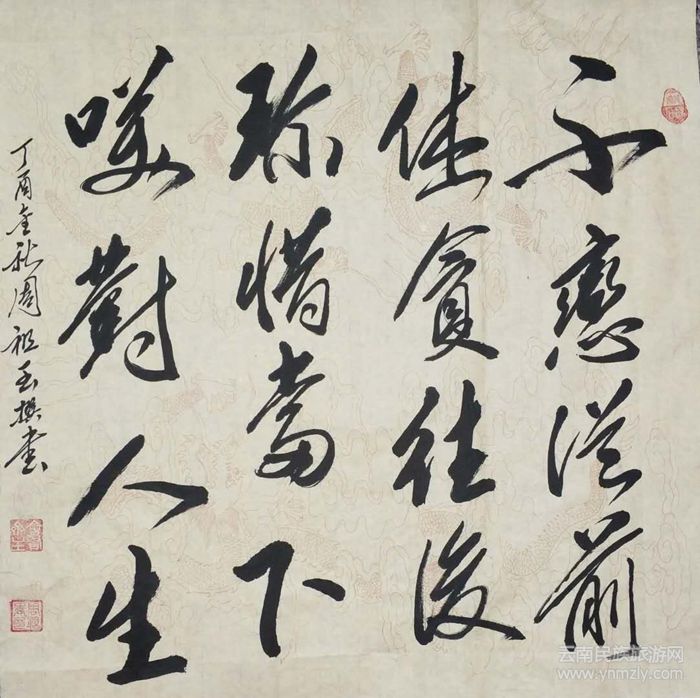 不戀從前
休貪往後
珎惜當下
咲對人生
丁酉金秋周祖撰書
云南民族旅游网
www.ynmzly.com